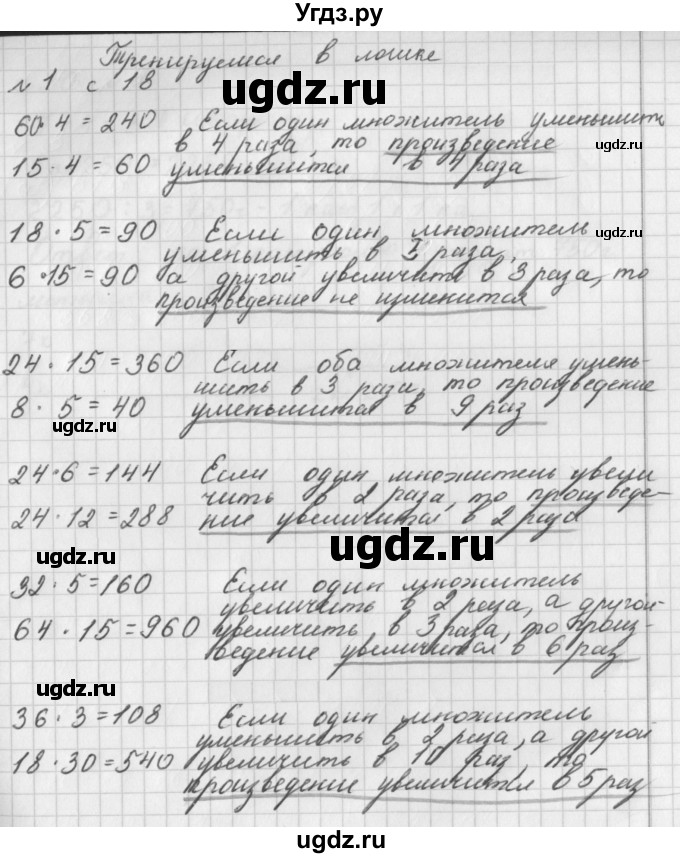 Угдз.ру
Тренируемся в логике
№ 1 с 18
ugdz.ru
60·4 = 240 Если один множитель уменьшить
в 4 раза, то произведение
ugdz.ru
15·4 = 60 уменьшится в 4 раза
ugdz.ru
18·5 = 90 Если один множитель
уменьшить в 3 раза,
6·15 = 90 а другой увеличить в 3 раза, то
произведение не изменится
24·15 = 360 Если оба множителя умень-
шить в 3 раза, то произведение
8·5 = 40 уменьшится в 9 раз
ugdz.ru
ugdz.ru
24·6 = 144 Если один множитель увели
чить в 2 раза, то произведе-
24·12 = 288 ние увеличится в 2 раза
ugdz.ru
ugdz.ru
32·5 = 160 Если один множитель
увеличить в 2 раза, а другой
64·15 = 960 увеличить в 3 раза, то произ-
ведение увеличится в 6 раз
ugdz.ru
36·3 = 108 Если один множитель
уменьшить в 2 раза, а другой
18·30 = 540 увеличить в 10 раз, то
произведение увеличится в 5 раз
ugdz.ru
ugdz.ru